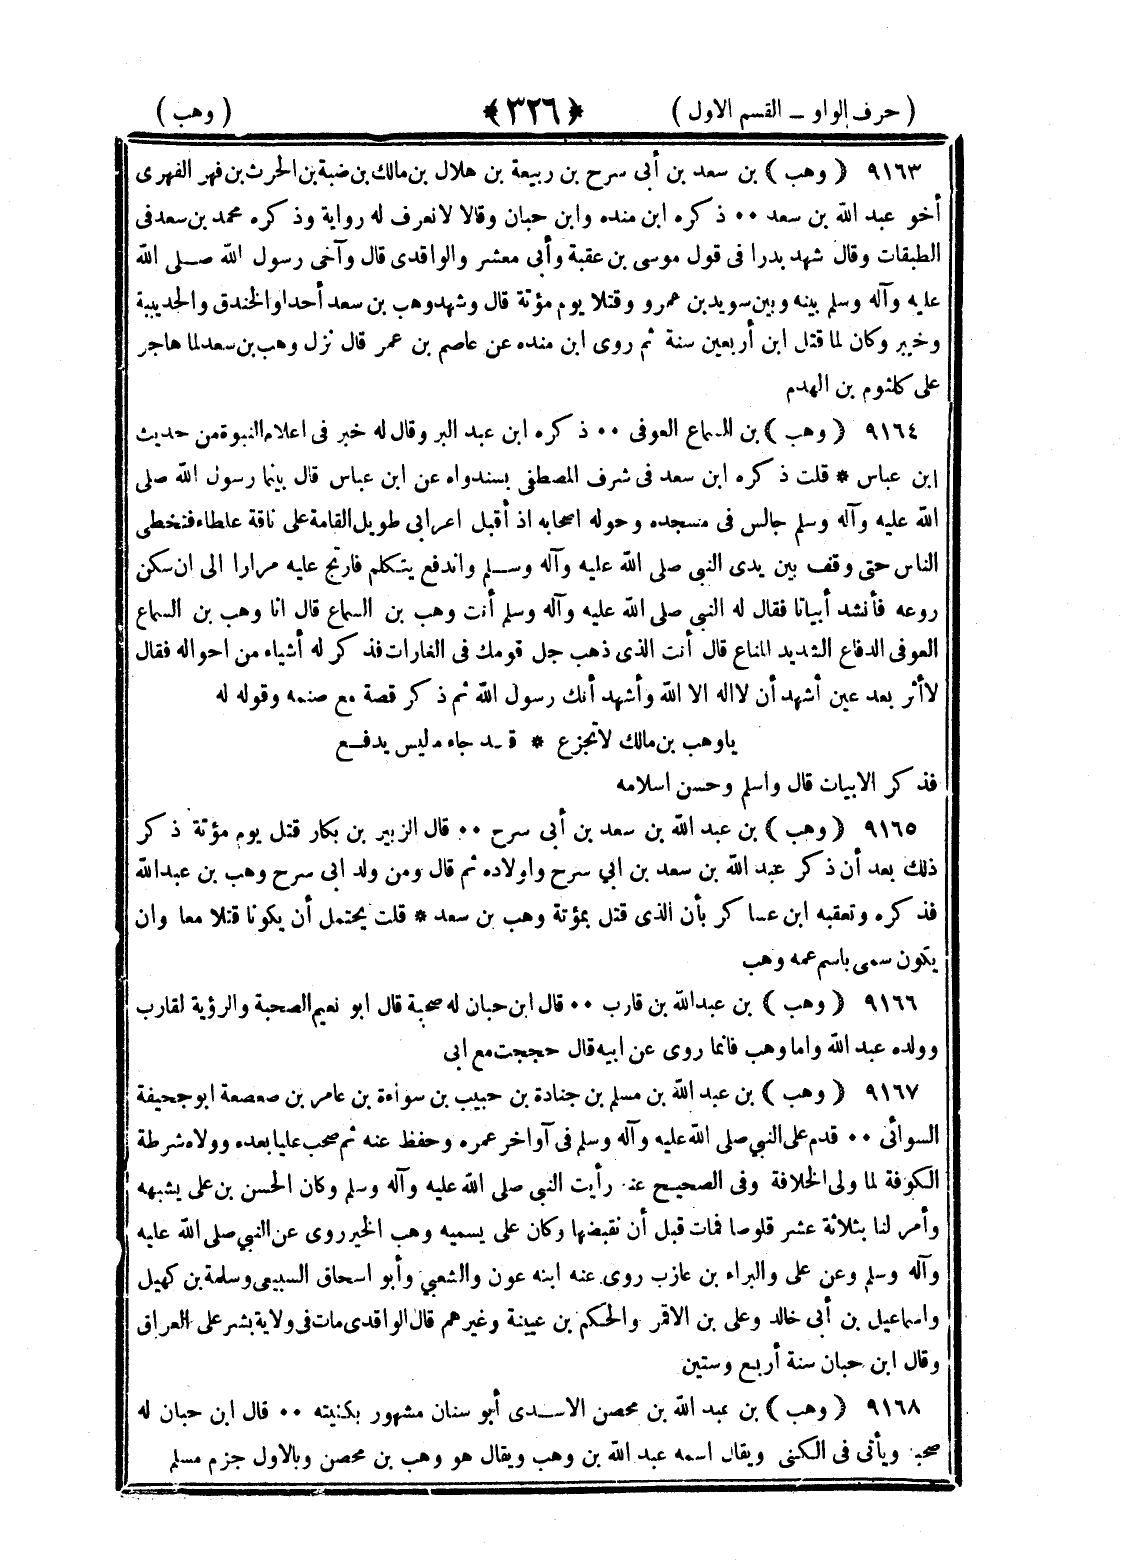 ( حرف الواو ــ القسم الاول )
﴿ ٣٢٦ ﴾
( وهب )
٩١٦٣ ( وهب ) بن سعد بن أبى سرح بن ربيعة بن هلال بن مالك بن ضبة بن الحرث بن فهر الفهرى
أخو عبد الله بن سعد ٠٠ ذكره ابن منده وابن حبان وقالا لانعرف له رواية وذكره محمد بن سعد فى
الطبقات وقال شهد بدرا فى قول موسى بن عقبة وأبى معشر والواقدى قال وآخى رسول الله صلى الله
عليه وآله وسلم بينه وبين سويد بن عمرو وقتلا يوم مؤتة قال وشهد وهب بن سعد أحدا والخندق والحديبية
وخيبر وكان لما قتل ابن أربعين سنة ثم روى ابن منده عن عاصم بن عمر قال نزل وهب بن سعد لما هاجر
على كلثوم بن الهدم
٩١٦٤ ( وهب ) بن السماع العوفى ٠٠ ذكره ابن عبد البر وقال له خبر فى اعلام النبوة من حديث
ابن عباس * قلت ذكره ابن سعد فى شرف المصطفى بسندواه عن ابن عباس قال بينما رسول الله صلى
الله عليه وآله وسلم جالس فى مسجده وحوله اصحابه اذ أقبل اعرابى طويل القامة على ناقة علطاء فتخطى
الناس حتى وقف بين يدى النبى صلى الله عليه وآله وسلم واندفع يتكلم فارتج عليه مرارا الى ان سكن
روعه فأنشد أبياتا فقال له النبى صلى الله عليه وآله وسلم أنت وهب بن السماع قال انا وهب بن السماع
العوفى الدفاع الشديد المناع قال أنت الذى ذهب جل قومك فى الغارات فذكر له أشياء من احواله فقال
لاأثر بعد عين أشهد أن لااله الا الله وأشهد أنك رسول الله ثم ذكر قصة مع صنمه وقوله له
ياوهب بن مالك لاتجزع * قد جاء مليس يدفع
فذكر الابيات قال واسلم وحسن اسلامه
٩١٦٥ ( وهب ) بن عبد الله بن سعد بن أبى سرح ٠٠ قال الزبير بن بكار قتل يوم مؤتة ذكر
ذلك بعد أن ذكر عبد الله بن سعد بن ابي سرح واولاده ثم قال ومن ولد ابى سرح وهب بن عبدالله
فذكره وتعقبه ابن عساكر بأن الذى قتل بمؤتة وهب بن سعد * قلت يحتمل أن يكونا قتلا معا وان
يكون سمى باسم عمه وهب
٩١٦٦ ( وهب ) بن عبدالله بن قارب ٠٠ قال ابن حبان له صحبة قال ابو نعيم الصحبة والرؤية لقارب
وولده عبد الله واما وهب فانما روى عن ابيه قال حججت مع ابى
٩١٦٧ ( وهب ) بن عبد الله بن مسلم بن جنادة بن حبيب بن سواءة بن عامر بن صعصعة ابو جحيفة
السوائى ٠٠ قدم على النبي صلى الله عليه وآله وسلم فى آواخر عمره وحفظ عنه ثم صحب عليا بعده وولاه شرطة
الكوفة لما ولى الخلافة وفى الصحيح عنه رأيت النبى صلى الله عليه وآله وسلم وكان الحسن بن على يشبهه
وأمر لنا بثلاثة عشر قلوصا فمات قبل أن نقبضها وكان على يسميه وهب الخير روى عن النبي صلى الله عليه
وآله وسلم وعن على والبراء بن عازب روى عنه ابنه عون والشعبي وأبو اسحاق السبيعى وسلمة بن كهيل
واسماعيل بن أبى خالد وعلى بن الاقمر والحكم بن عيينة وغيرهم قال الواقدى مات فى ولاية بشر على العراق
وقال ابن حبان سنة أربع وستين
٩١٦٨ ( وهب ) بن عبد الله بن محصن الاسدى أبو سنان مشهور بكنيته ٠٠ قال ابن حبان له
صحبة ويأتى فى الكنى ويقال اسمه عبد الله بن وهب ويقال هو وهب بن محصن وبالاول جزم مسلم